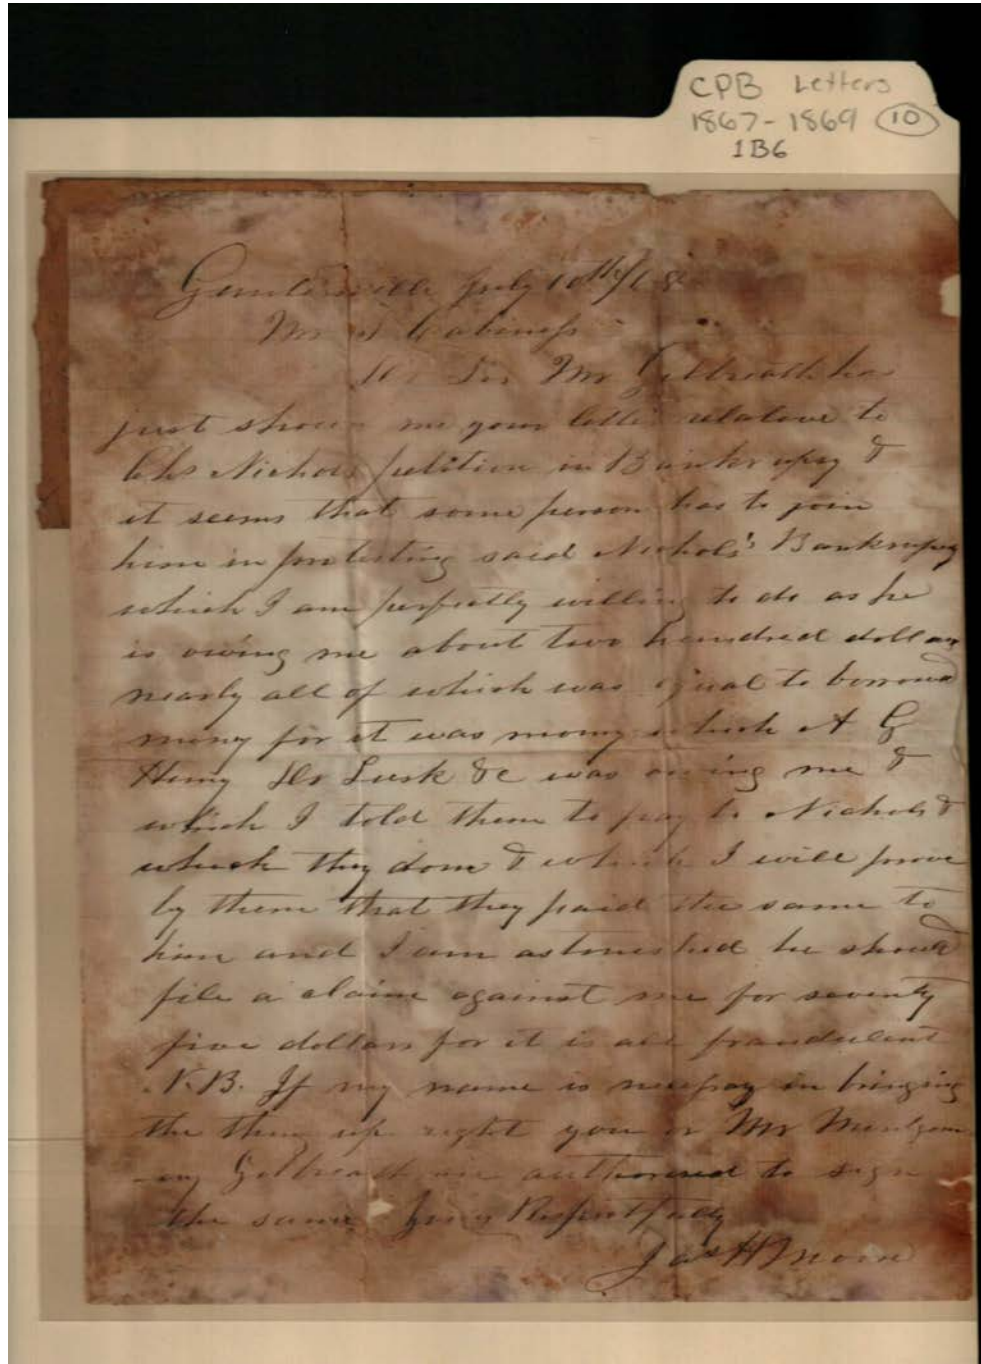 CPB Letters
1867-1869 10
1B6
Guntersville July 10th/68
Mr S Cabiness
Dr Sir Mr Gilbreath has
just shown me your letter relative to
Chs Nichols petition in Bankrupcy &
it seems that some person has to join
him in protesting said Nichols's Bankrupcy
which I am perfectly willing to do as he
is owing me about two hundred dollars
nearly all of which was equal to borrowed
money for it was money which A G
Henry Dr Lusk &c was owing me &
which I told them to pay to Nichols &
which they done & which I will prove
by them that they paid the same to
him and I am astonished he should
file a claim against me for seventy
five dollars for it is all fraudulent
N.B. If my name is necessary in bringing
the thing up right you or Mr Montgom
ery Gilbreath are authorised to sign
the same Yours Respectfully
Jas H